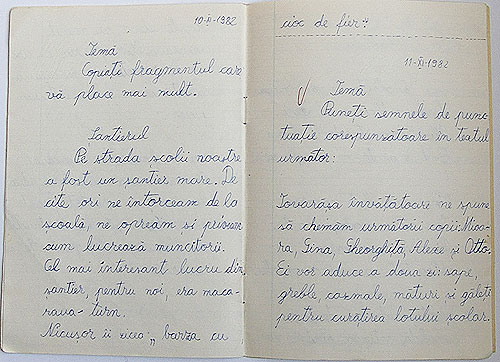 10-XI-1982
Temă
Copiați fragmentul care
vă place mai mult.
Șantierul
Pe strada școlii noastre
a fost un șantier mare. De
cîte ori ne întorceam de la
școală, ne opream și priveam
cum lucrează muncitorii.
Cel mai interesant lucru din
șantier, pentru noi, era maca-
raua-turn.
Nicușor îi zicea: „barza cu
cioc de fier":
11-XI-1982
Temă
Puneți semnele de punc-
tuație corespunzătoare în textul
următor:
Tovarășa învățătoare ne spune
să chemăm următorii copii: Mioa-
ra, Gina, Gheorghiță, Alexe și Otto.
Ei vor aduce a doua zi sape,
greble, cazmale, mături și găleți
pentru curățirea lotului școlar.